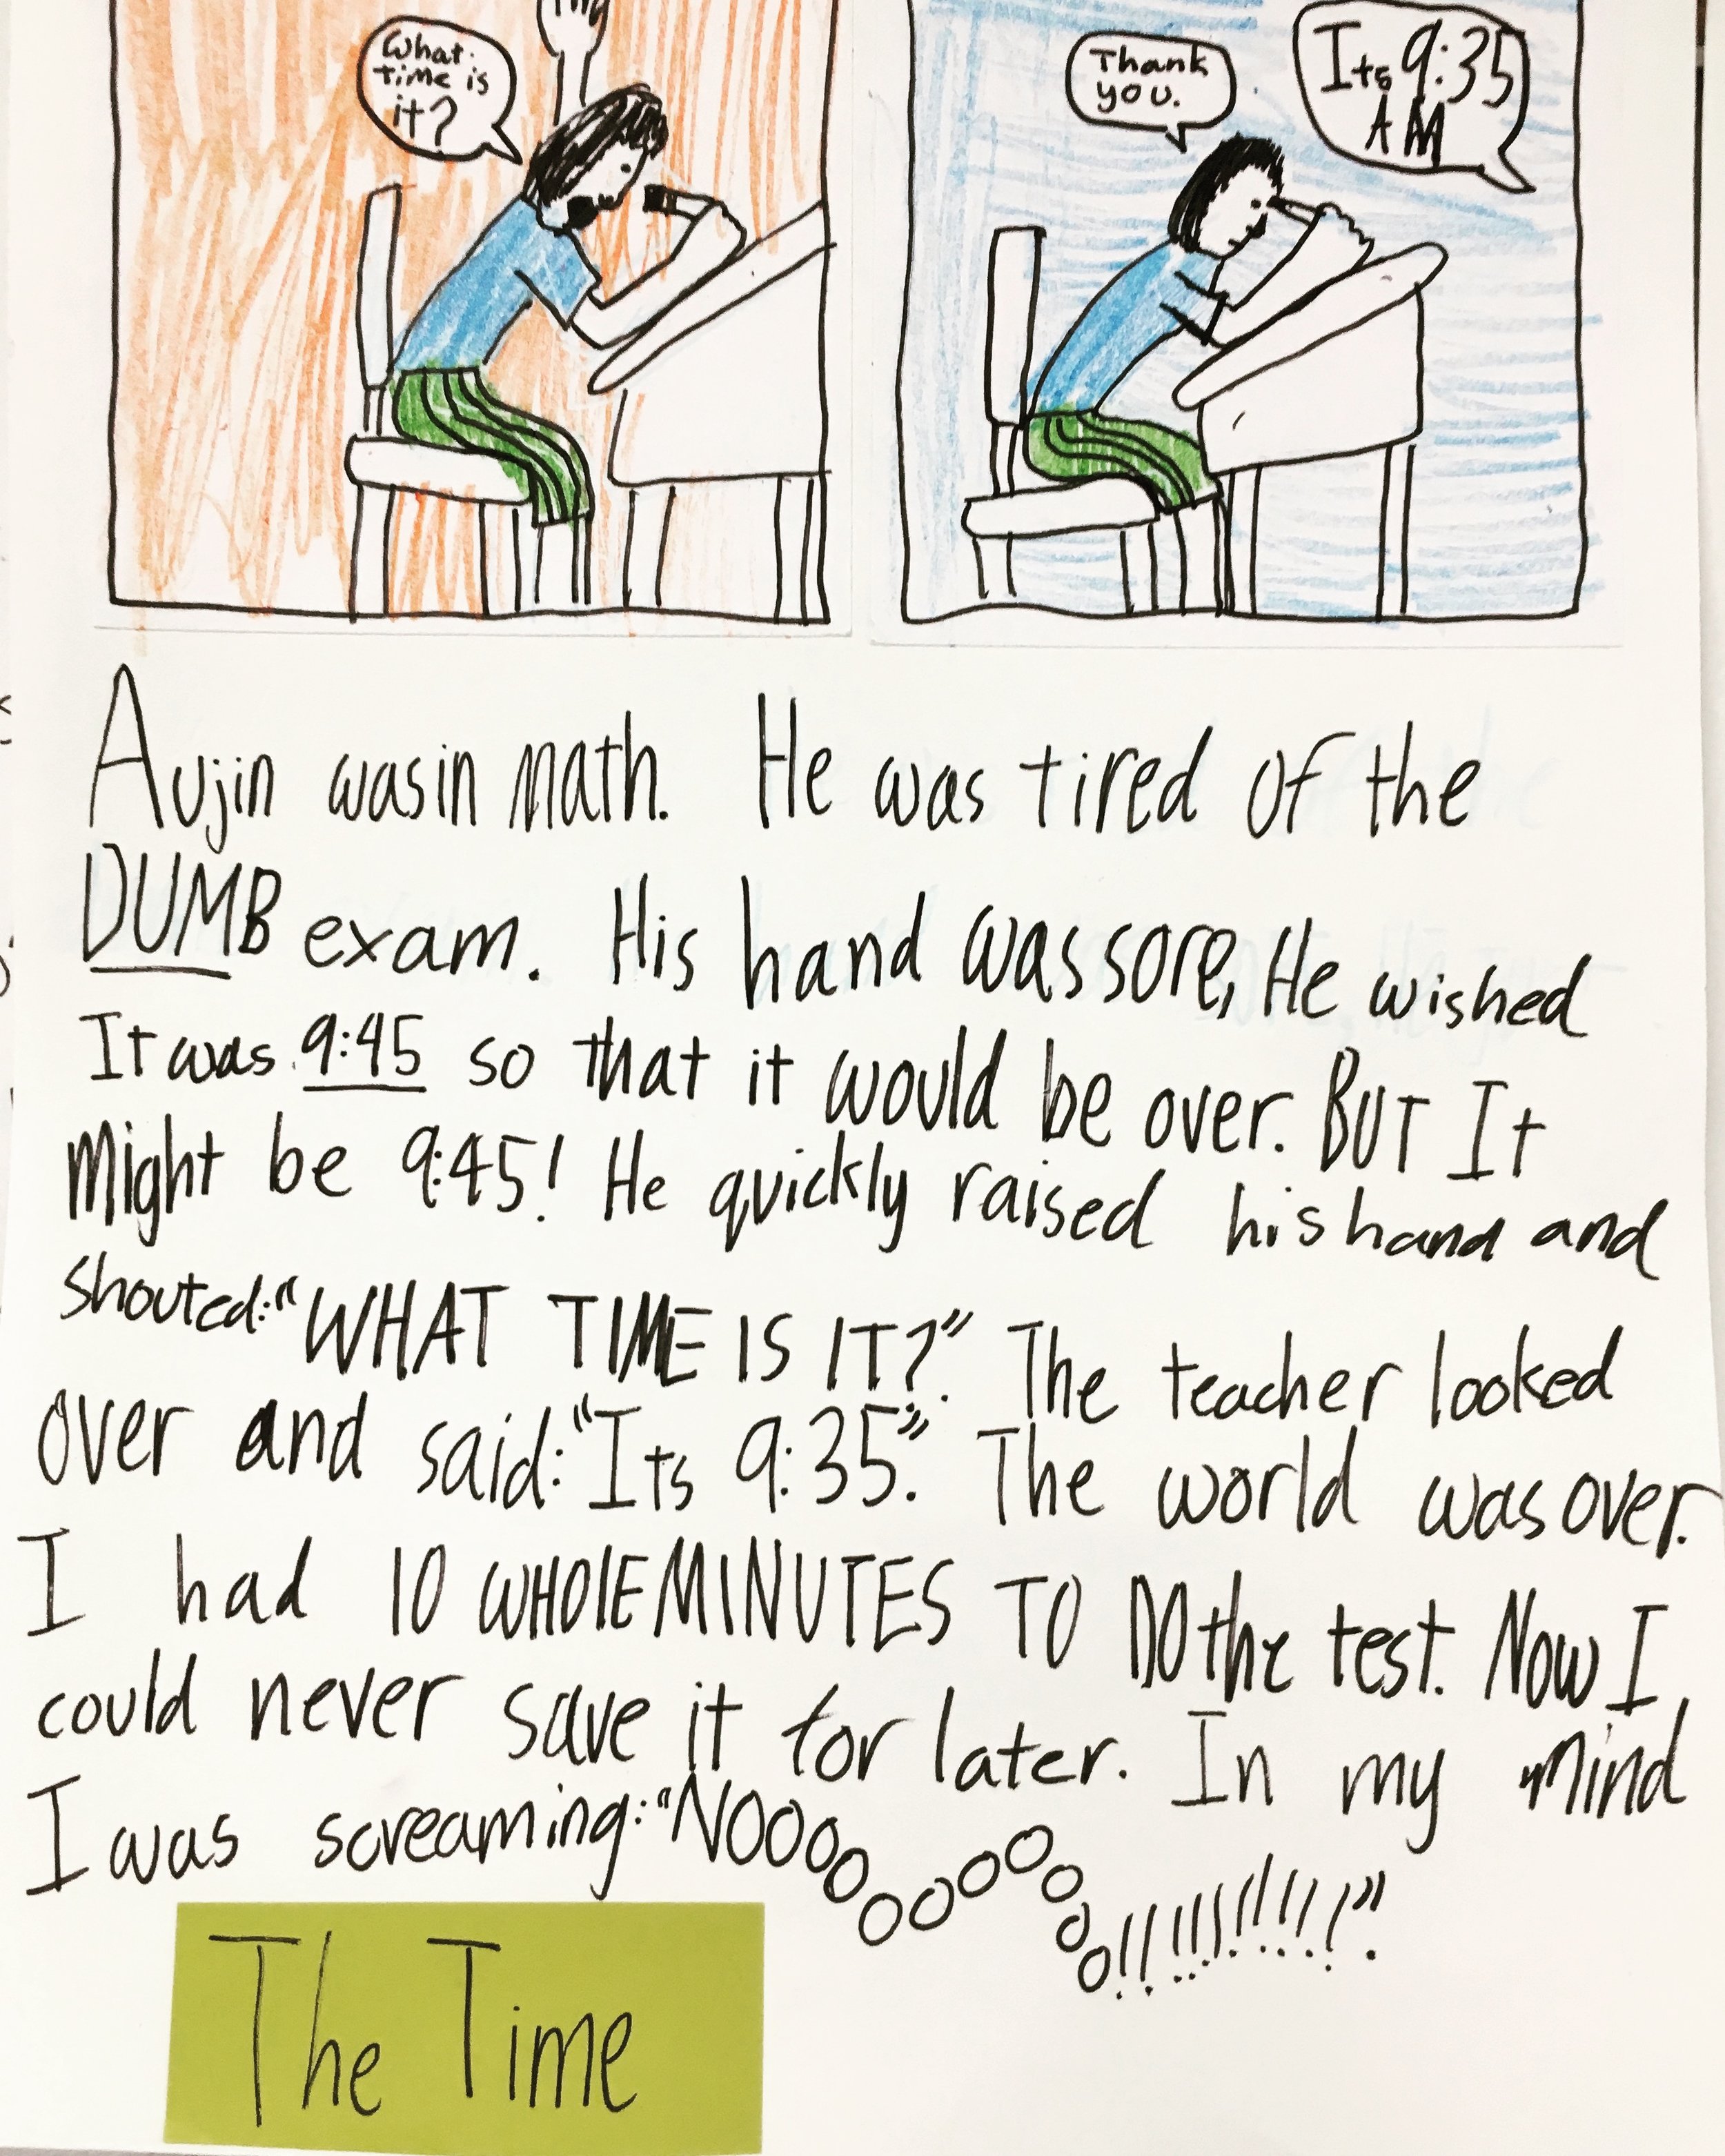 What
time is
it?
Thank
you.
Its 9:35
AM
Aujin was in math. He was tired of the
DUMB exam. His hand was sore, He wished
It was 9:45 so that it would be over. BUT It
Might be 9:45! He quickly raised his hand and
shouted: "WHAT TIME IS IT?". The teacher looked
over and said: "Its 9:35". The world was over.
I had 10 WHOLE MINUTES TO DO the test. Now I
could never save it for later. In my mind
I was screaming: "NOOOOOOOOOOOO!!!!!!!!!!!".
The Time